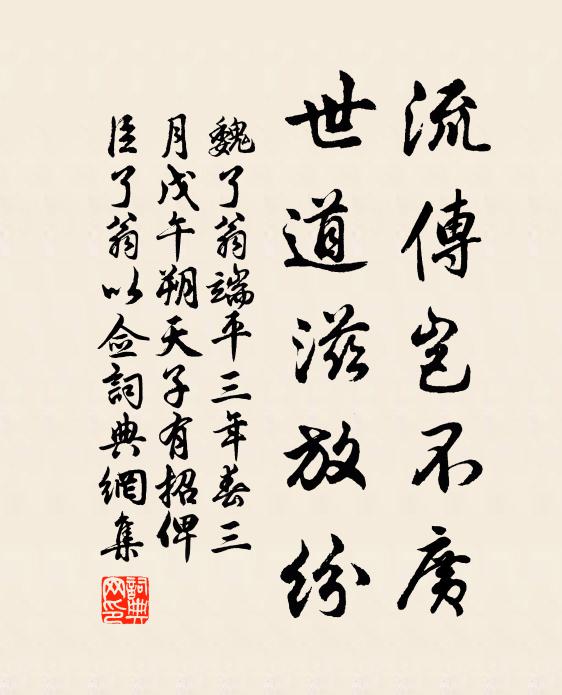 流傳豈不廣
世道滋放紛
魏了翁端平三年春三
月戊午朔天子有招俾
臣了翁以僉詞典網集
詞典網印